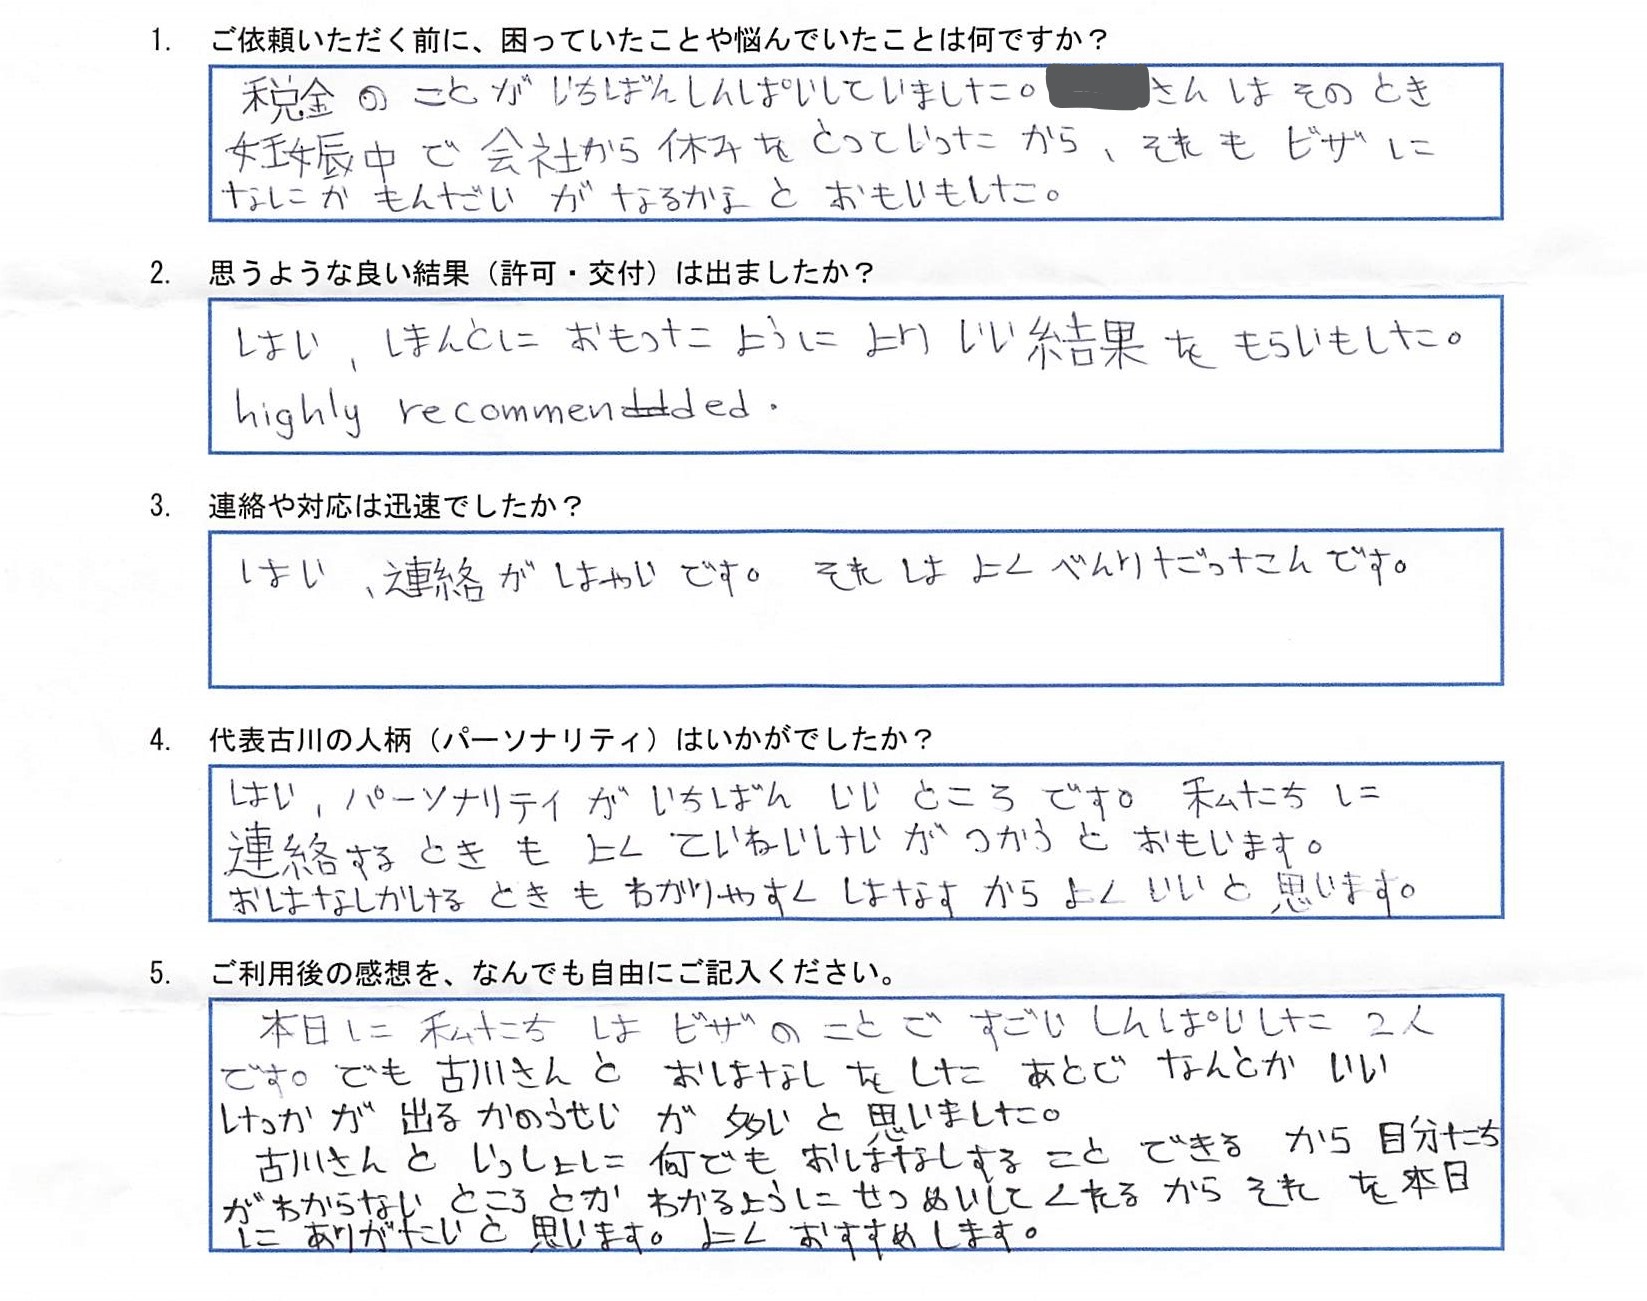 1. ご依頼いただく前に、困っていたことや悩んでいたことは何ですか？
税金のことがいちばんしんぱいしていました。さんはそのとき
妊娠中で会社から休みをとっていったから、それもビザに
なにかもんだいがなるかなとおもいもした。
2. 思うような良い結果（許可・交付）は出ましたか？
はい、ほんとにおもったようによりいい結果をもらいもした。
highly recommended.
3. 連絡や対応は迅速でしたか？
はい、連絡がはやいです。それはよくべんりだったんです。
4. 代表古川の人柄（パーソナリティ）はいかがでしたか？
はい、パーソナリティがいちばんいいところです。私たちに
連絡するときもよくていねいけいがつかうとおもいます。
おはなしかけるときもわかりやすくはなすからよくいいと思います。
5. ご利用後の感想を、なんでも自由にご記入ください。
本日に私たちはビザのことですごいしんぱいした2人
です。でも古川さんとおはなしをしたあとでなんとかいい
けっかが出るかのうせいが多いと思いました。
古川さんといっしょに何でもおはなしすることできるから自分たち
がわからないところとかわかるようにせつめいしてくれるからそれを本日
にありがたいと思います。よくおすすめします。